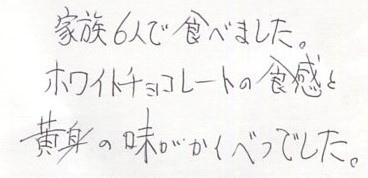 家族6人で食べました。
ホワイトチョコレートの食感と
黄身の味がかくべつでした。